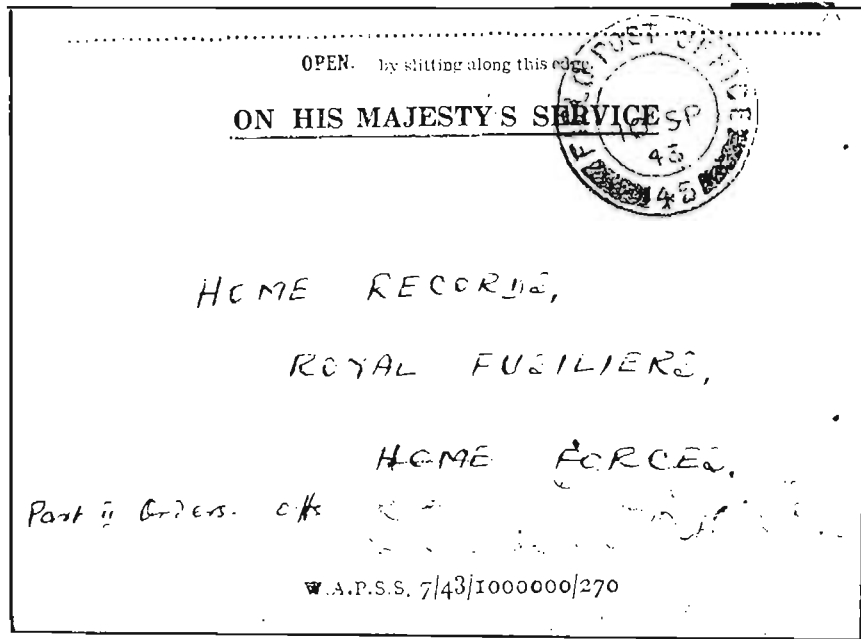 OPEN. by slitting along this edge.
ON HIS MAJESTY'S SERVICE
FIELD POST OFFICE
10 SP
43
145
HOME RECORDS,
ROYAL FUSILIERS,
HOME FORCES.
Part ii Orders.
W.A.P.S.S. 7/43/1000000/270